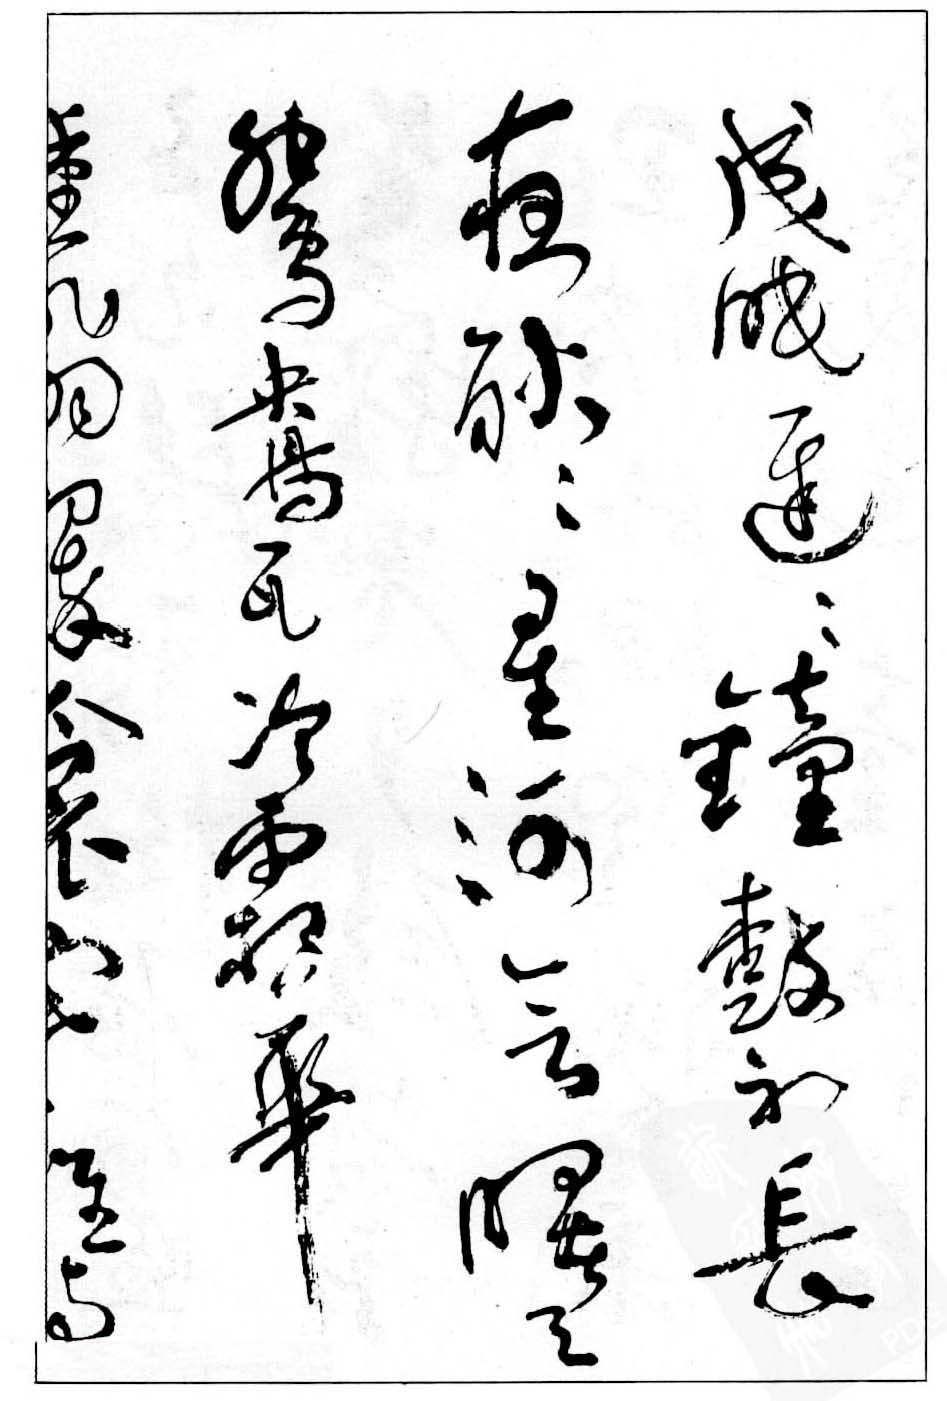 成眠遲〻鐘鼓初長
夜耿〻星河欲曙天
鴛鴦瓦冷霜華
重翡翠衾寒誰与